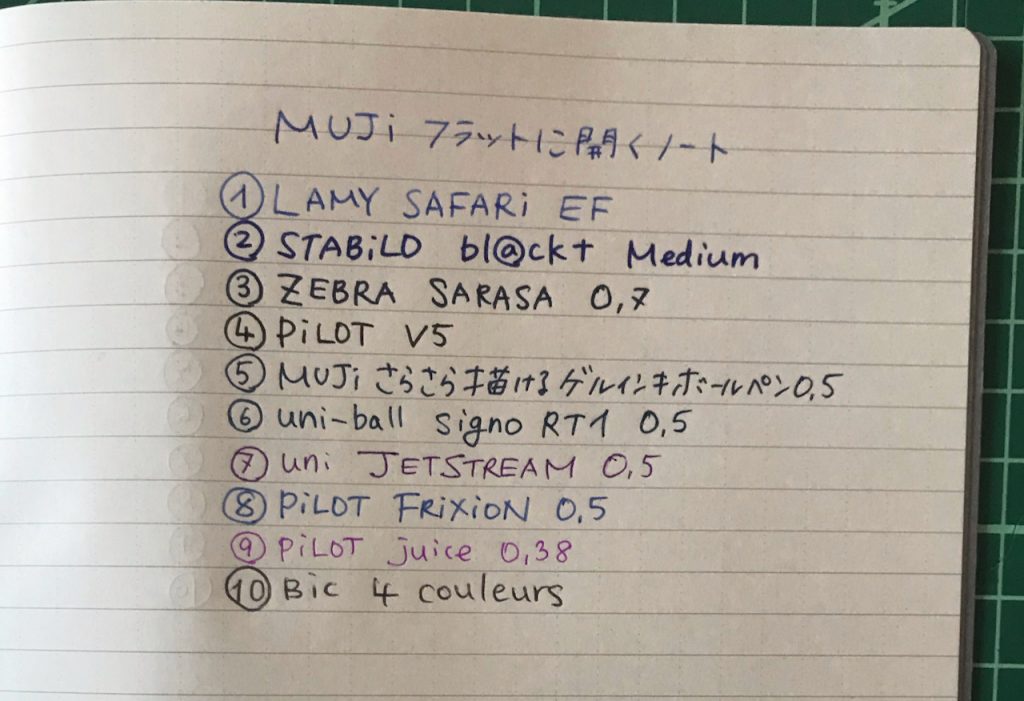 MUJi フラットに開くノート
① LAMY SAFARi EF
② STABiLO bl@ck+ Medium
③ ZEBRA SARASA 0,7
④ PiLOT V5
⑤ MUJi さらさら描けるゲルインキボールペン 0,5
⑥ uni-ball signo RT1 0,5
⑦ uni JETSTREAM 0,5
⑧ PiLOT FRiXiON 0,5
⑨ PiLOT juice 0,38
⑩ Bic 4 couleurs